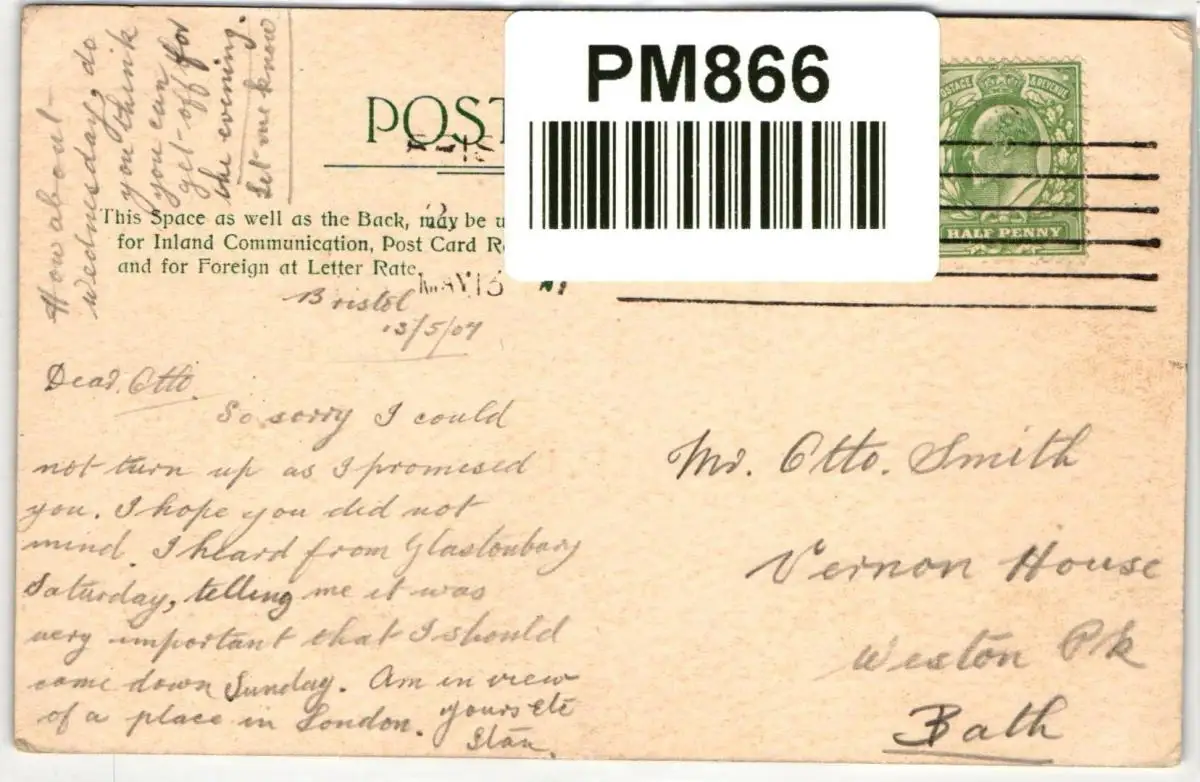 How about
Wednesday, do
you think
you can
get off for
the evening.
Let me know
POST
PM866
POSTAGE & REVENUE
HALF PENNY
This Space as well as the Back, may be u
for Inland Communication, Post Card R
and for Foreign at Letter Rate.
MAY 13
Bristol
13/5/07
Dear Otto.
So sorry I could
not turn up as I promised
you. I hope you did not
mind. I heard from Glastonbury
Saturday, telling me it was
very important that I should
come down Sunday. Am in view
of a place in London. Yours etc
Stan.
Mr. Otto. Smith
Vernon House
Weston Pk
Bath